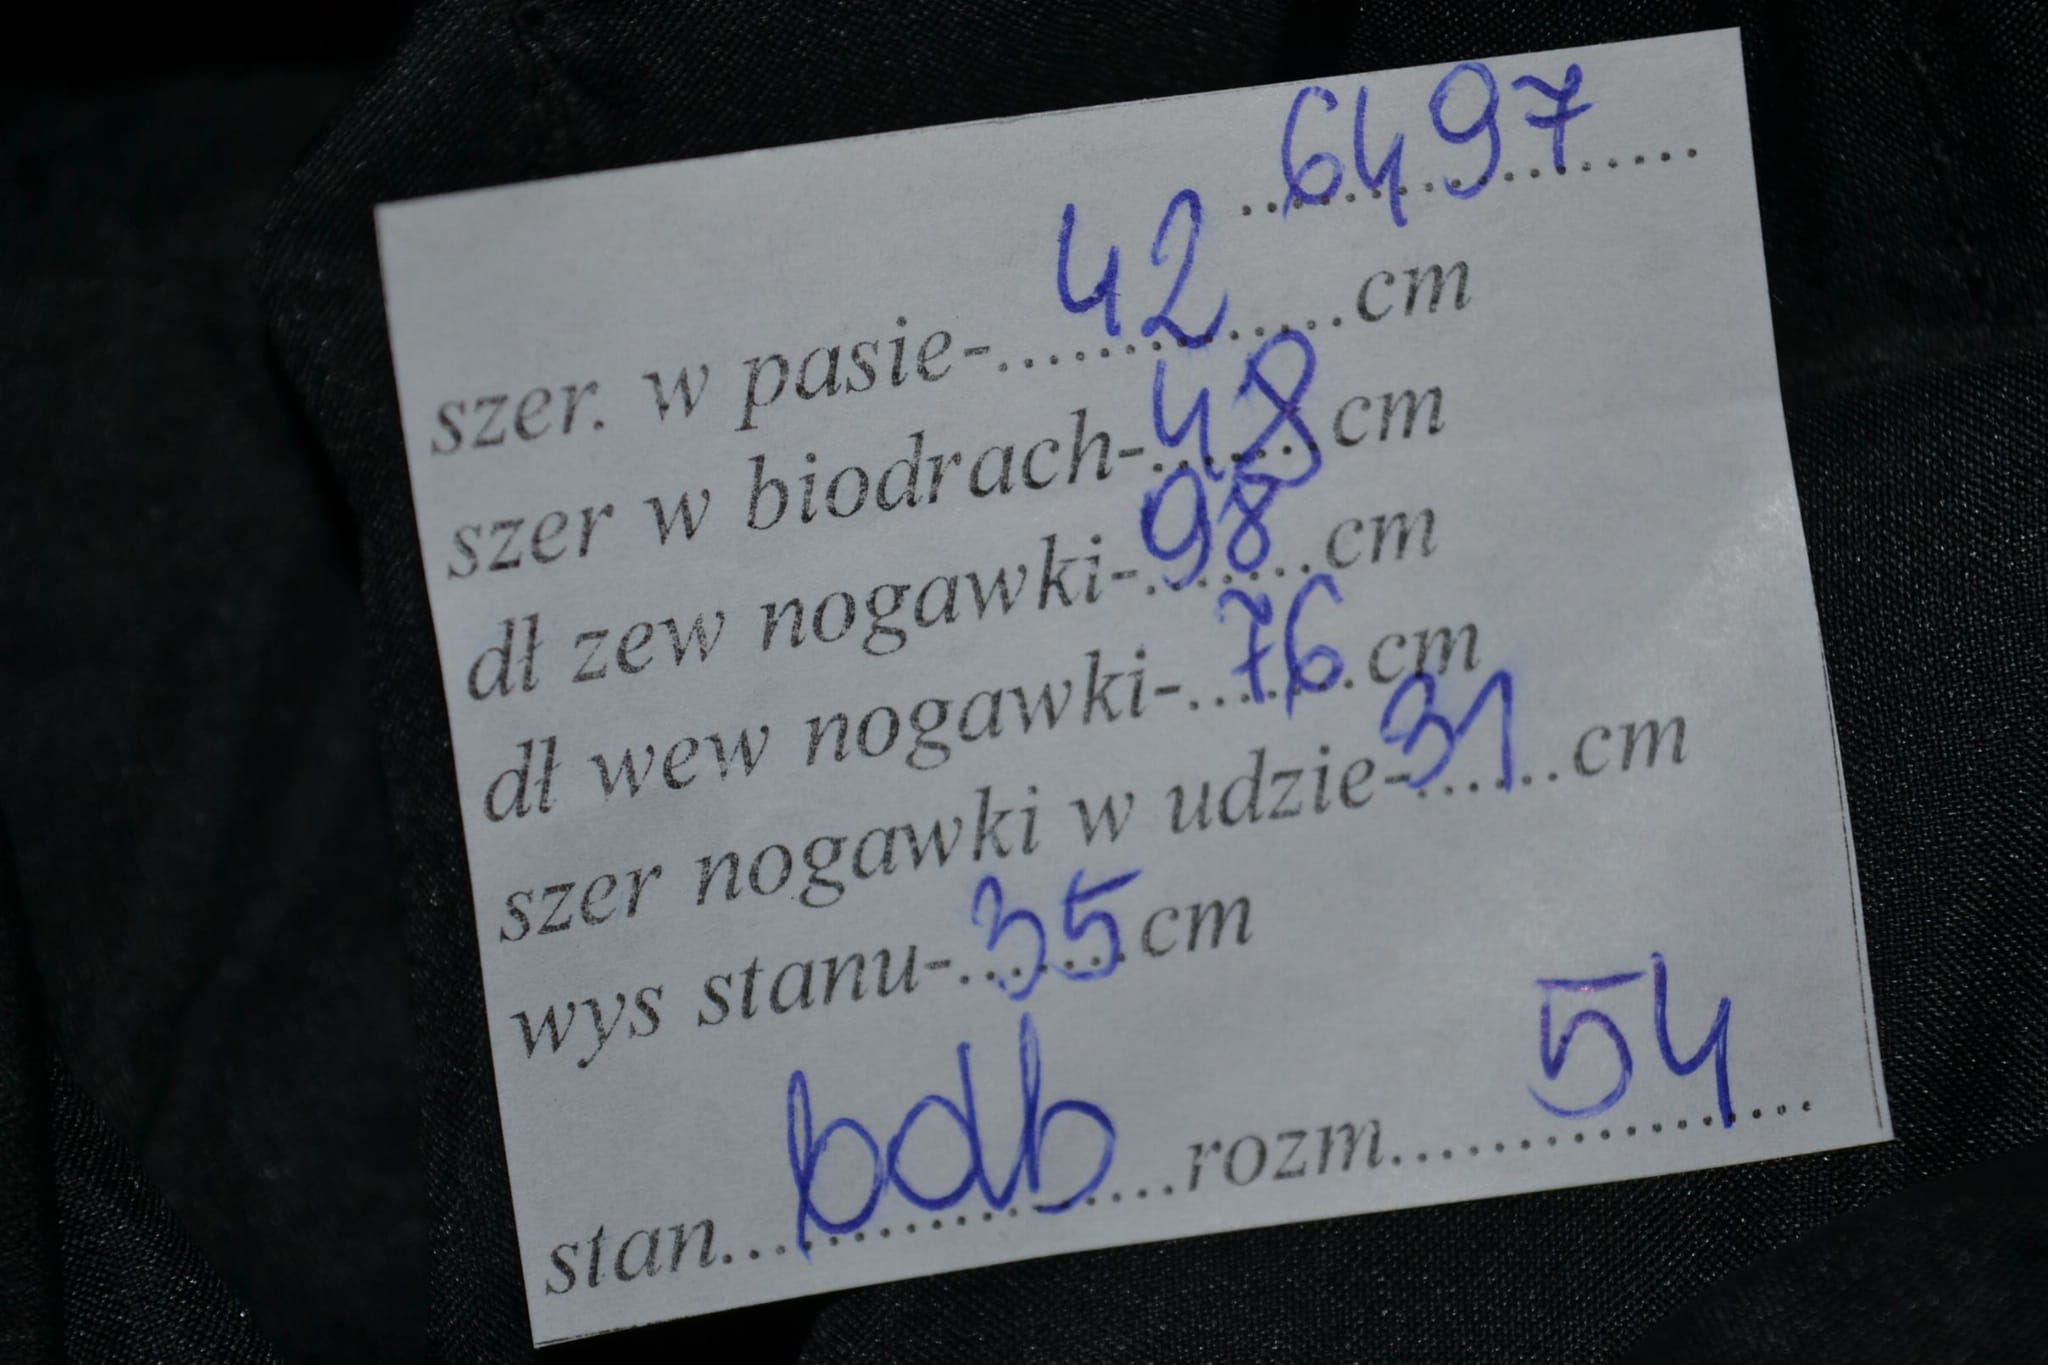 6497
szer. w pasie-42cm
szer w biodrach-48cm
dł zew nogawki-98cm
dł wew nogawki-76cm
szer nogawki w udzie-31cm
wys stanu-35cm
stan bdb rozm 54